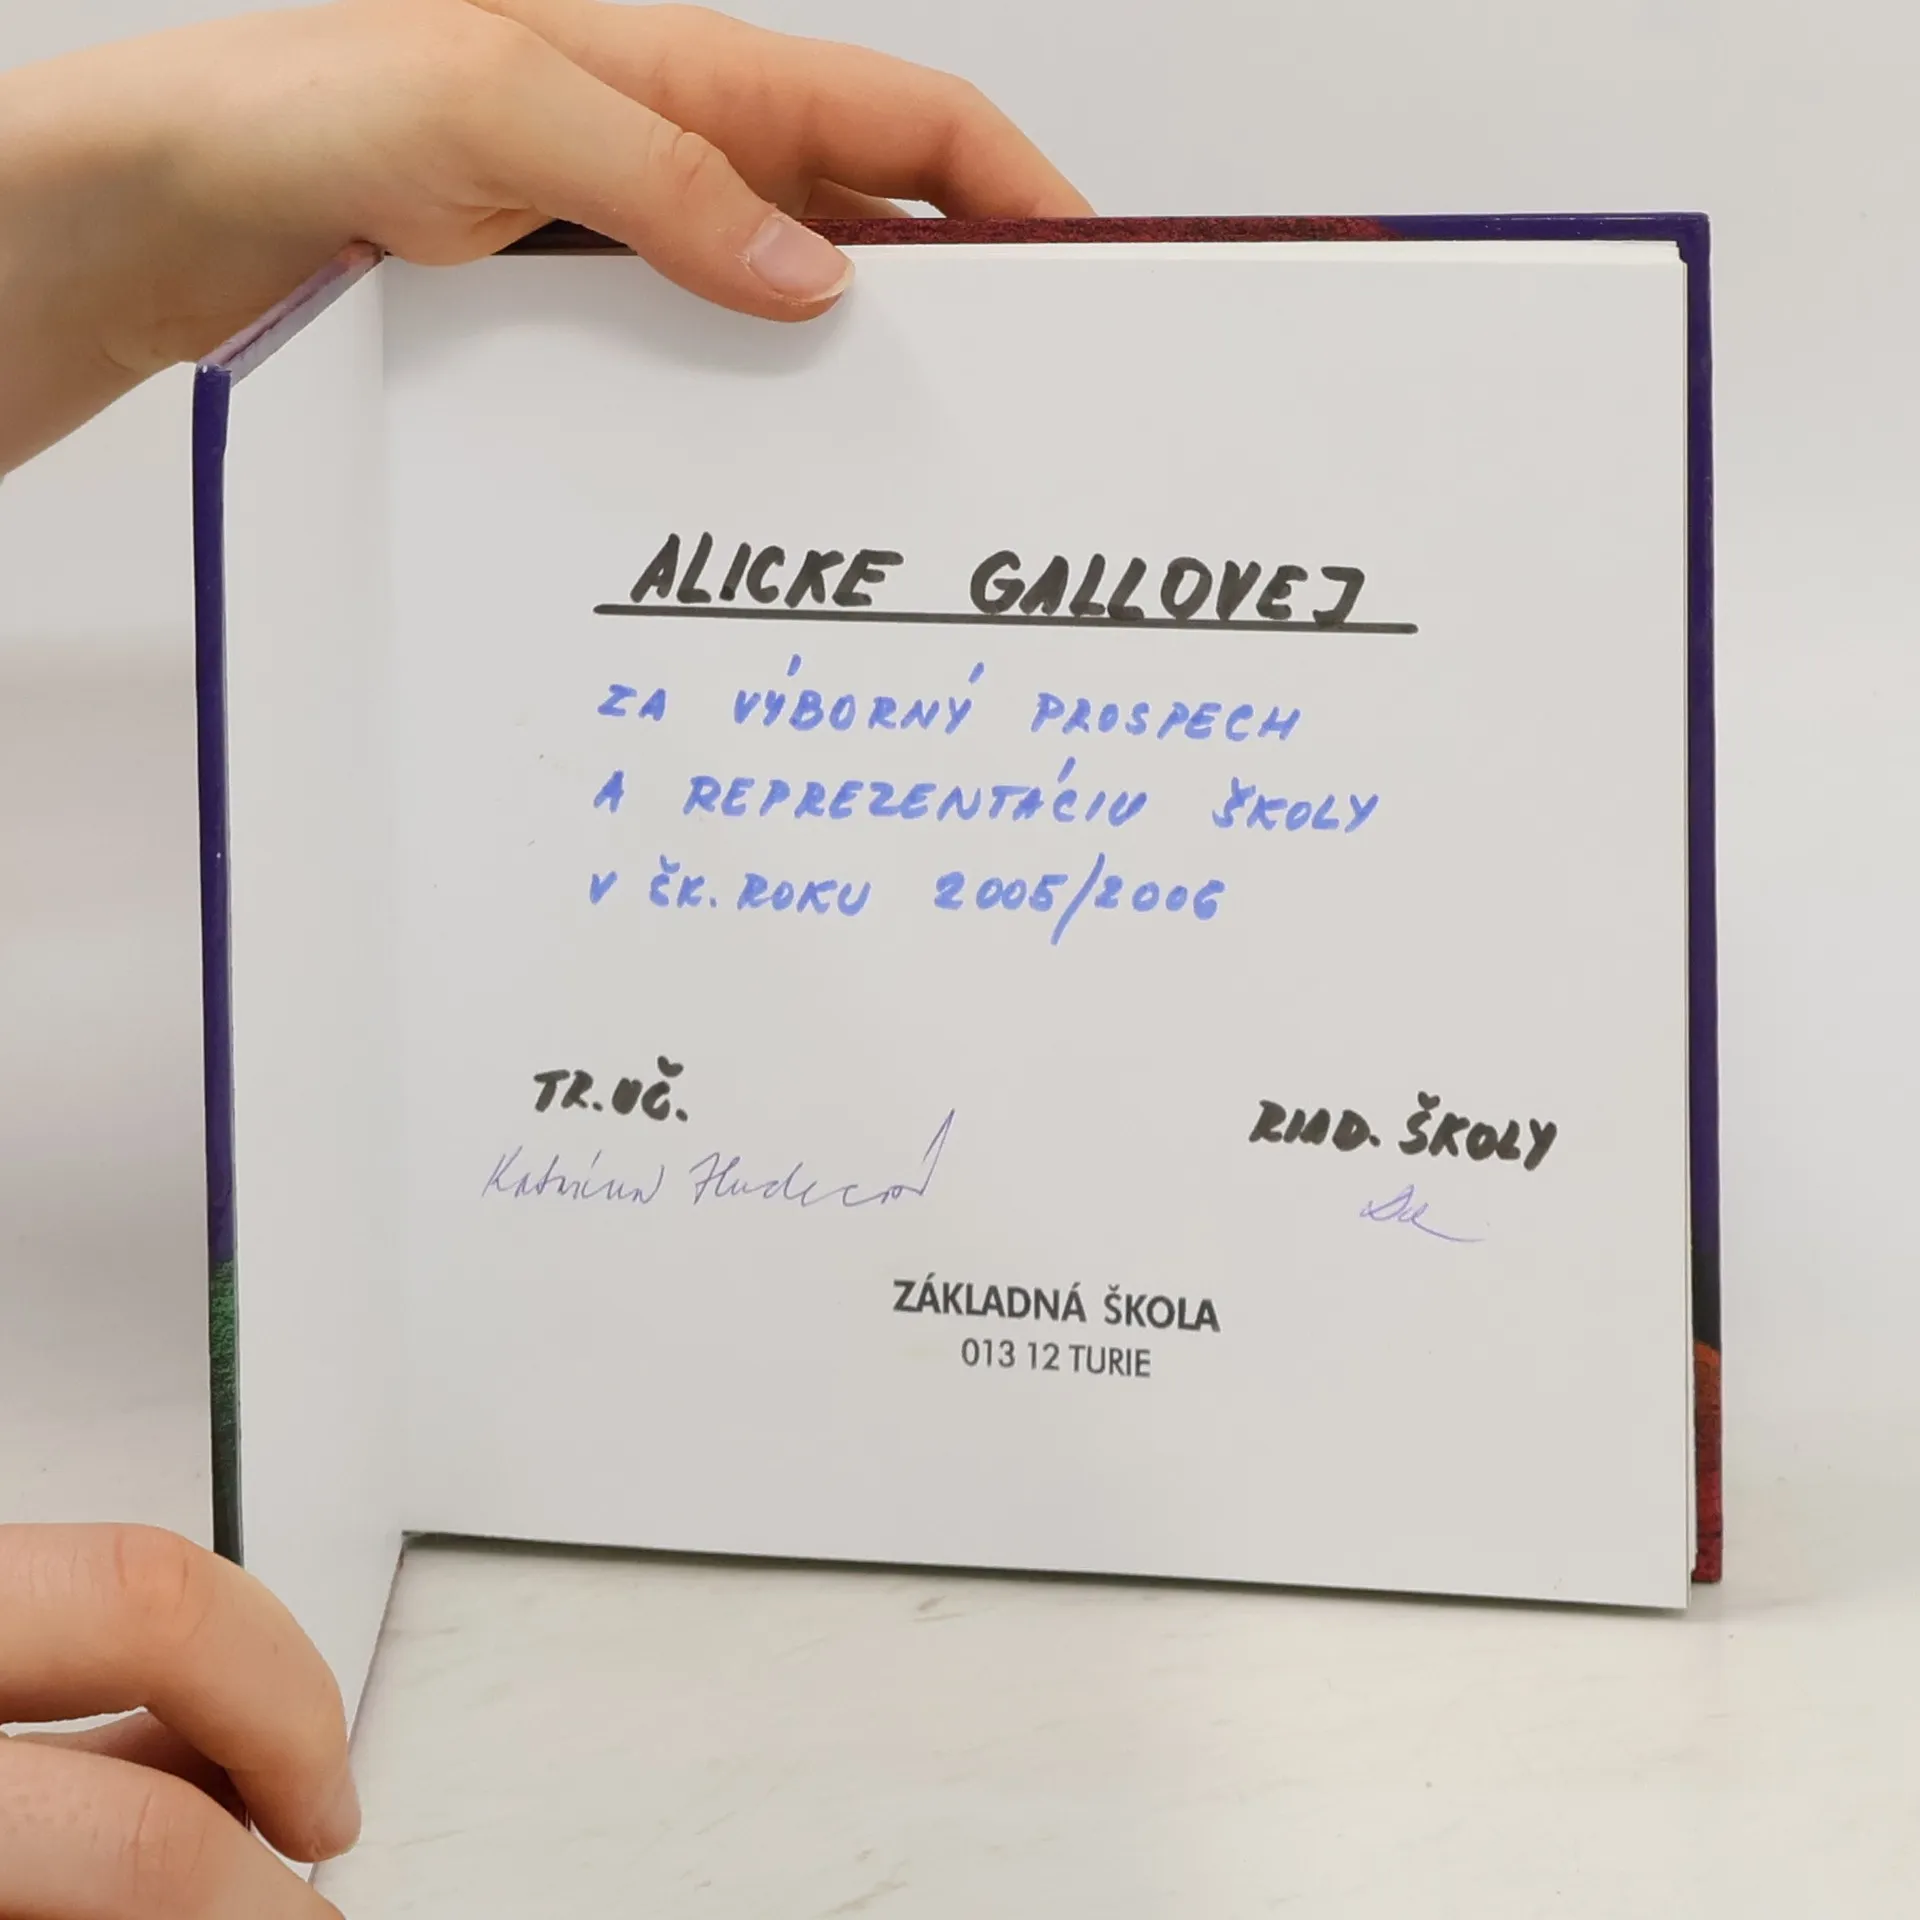 ALICKE GALLOVEJ
ZA VÝBORNÝ PROSPECH
A REPREZENTÁCIU ŠKOLY
V ŠK. ROKU 2005/2006
TR. UČ.
RIAD. ŠKOLY
Katarína Hudecová
ZÁKLADNÁ ŠKOLA
013 12 TURIE